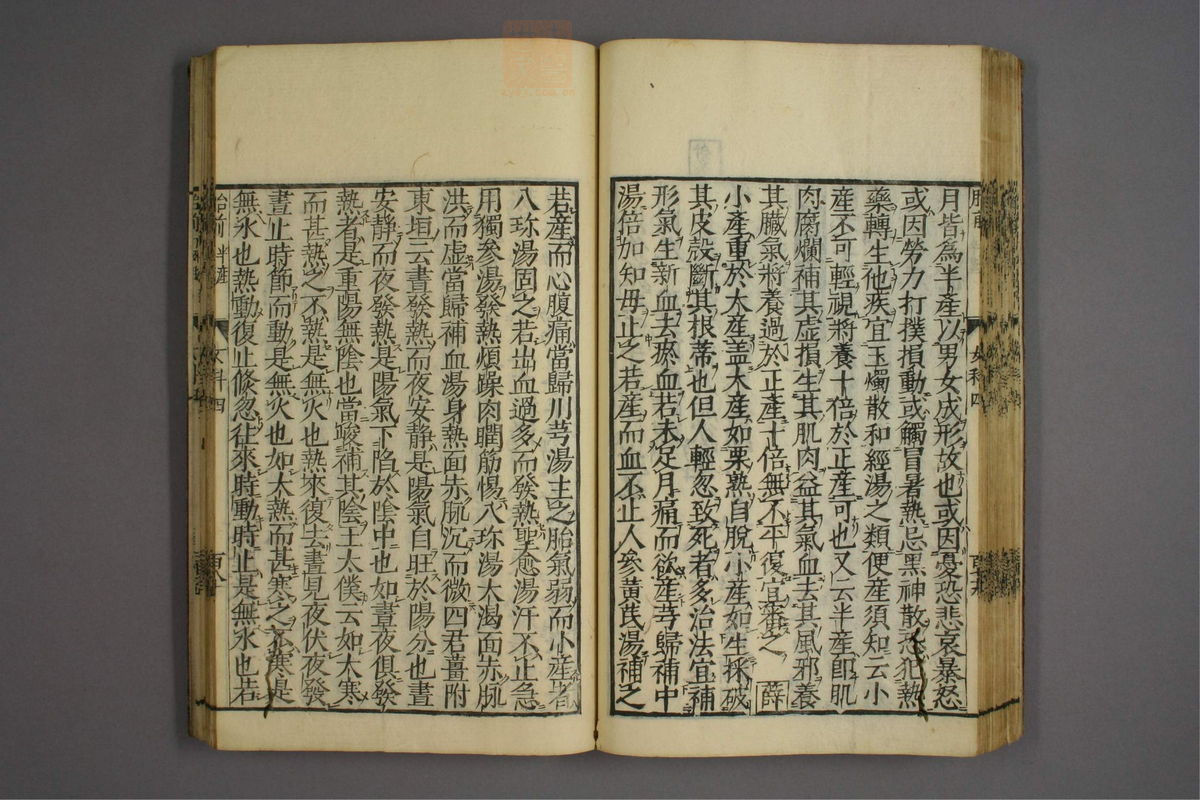 月皆為半產以男女成形故也或因憂恐悲哀暴怒
或因勞力打撲損動或觸冒暑熱忌黑神散恐犯熱
藥轉生他疾宜玉燭散和經湯之類便產須知云小
產不可輕視將養十倍於正產可也又云半產即肌
肉腐爛補其虛損生其肌肉益其氣血去其風邪養
其臟氣將養過於正產十倍無不平復宜審之 薛
小產重於大產盖大產如栗熟自脫小產如生採破
其皮殼斷其根蒂也但人輕忽致死者多治法宜補
形氣生新血去瘀血若未足月痛而欲產芎歸補中
湯倍加知母止之若產而血不止人參黃芪湯補之
若產而心腹痛當歸川芎湯主之胎氣弱而小產者
八珍湯固之若出血過多而發熱聖愈湯汗不止急
用獨參湯發熱煩躁肉瞤筋惕八珍湯大渴面赤脉
洪而虛當歸補血湯身熱面赤脉沉而微四君薑附
東垣云晝發熱而夜安靜是陽氣自旺於陽分也晝
安靜而夜發熱是陽氣下陷於陰中也如晝夜俱發
熱者是重陽無陰也當峻補其陰王太僕云如大寒
而甚熱之不熱是無火也熱來復去晝見夜伏夜發
晝止時節而動是無火也如大熱而甚寒之不寒是
無水也熱動復止倏忽往來時動時止是無水也若
胎前 半產
女科四